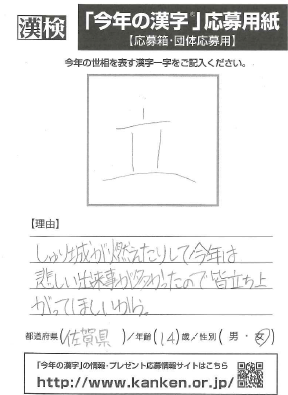 漢検 「今年の漢字®」応募用紙
【応募箱・団体応募用】
今年の世相を表す漢字一字をご記入ください。
立
【理由】
しゅり城が燃えたりして今年は
悲しい出来事が多かったので皆立ち上
がってほしいから。
都道府県(佐賀県)/年齢(14)歳/性別(男・女)
「今年の漢字」の情報・プレゼント応募情報サイトはこちら
http://www.kanken.or.jp/